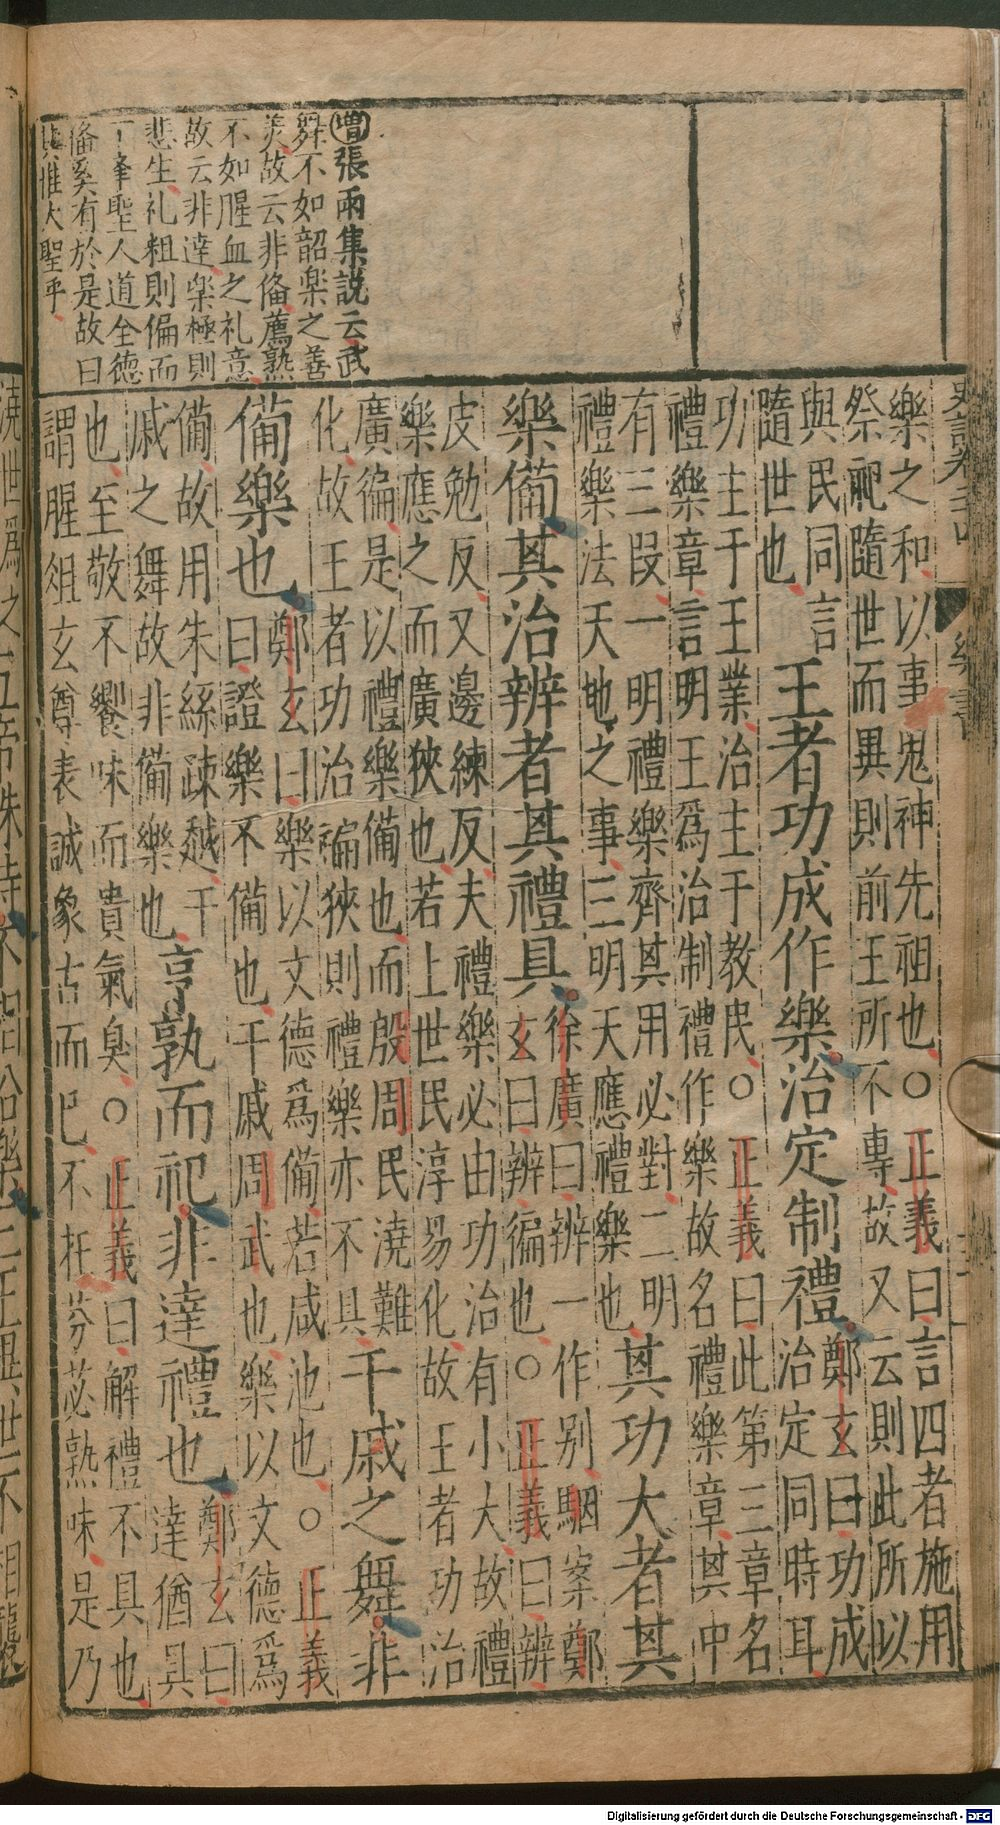 增張兩集說云武
舞不如韶樂之善
美故云非俻薦熟
不如腥血之礼意
故云非達樂極則
悲生礼粗則偏而
聖人道全德
俻奚有於是故曰
其惟大聖乎
史記卷二十四
樂書
樂之和以事鬼神先祖也○正義曰言四者施用
祭祀隨世而異則前王所不專故又云則此所以
與民同言
隨世也
王者功成作樂治定制禮
鄭玄曰功成
治定同時耳
功主于王業治主于教民○正義曰此第三章名
禮樂章言明王爲治制禮作樂故名禮樂章其中
有三段一明禮樂齊其用必對二明
禮樂法天地之事三明天應禮樂也
其功大者其
樂備其治辨者其禮具
徐廣曰辨一作別駰案鄭
玄曰辨徧也○正義曰辨
皮勉反又邊練反夫禮樂必由功治有小大故禮
樂應之而廣狹也若上世民淳易化故王者功治
廣徧是以禮樂備也而殷周民澆難
化故王者功治褊狹則禮樂亦不具
干戚之舞非
備樂也
鄭玄曰樂以文德爲備若咸池也○正義
曰證樂不備也干戚周武也樂以文德爲
備故用朱絲疎越干
戚之舞故非備樂也
亨孰而祀非達禮也
鄭玄曰
達猶具
也至敬不饗味而貴氣臭○正義曰解禮不具也
謂腥俎玄尊表誠象古而已不在芬苾熟味是乃
澆世爲之
Digitalisierung gefördert durch die Deutsche Forschungsgemeinschaft - DFG